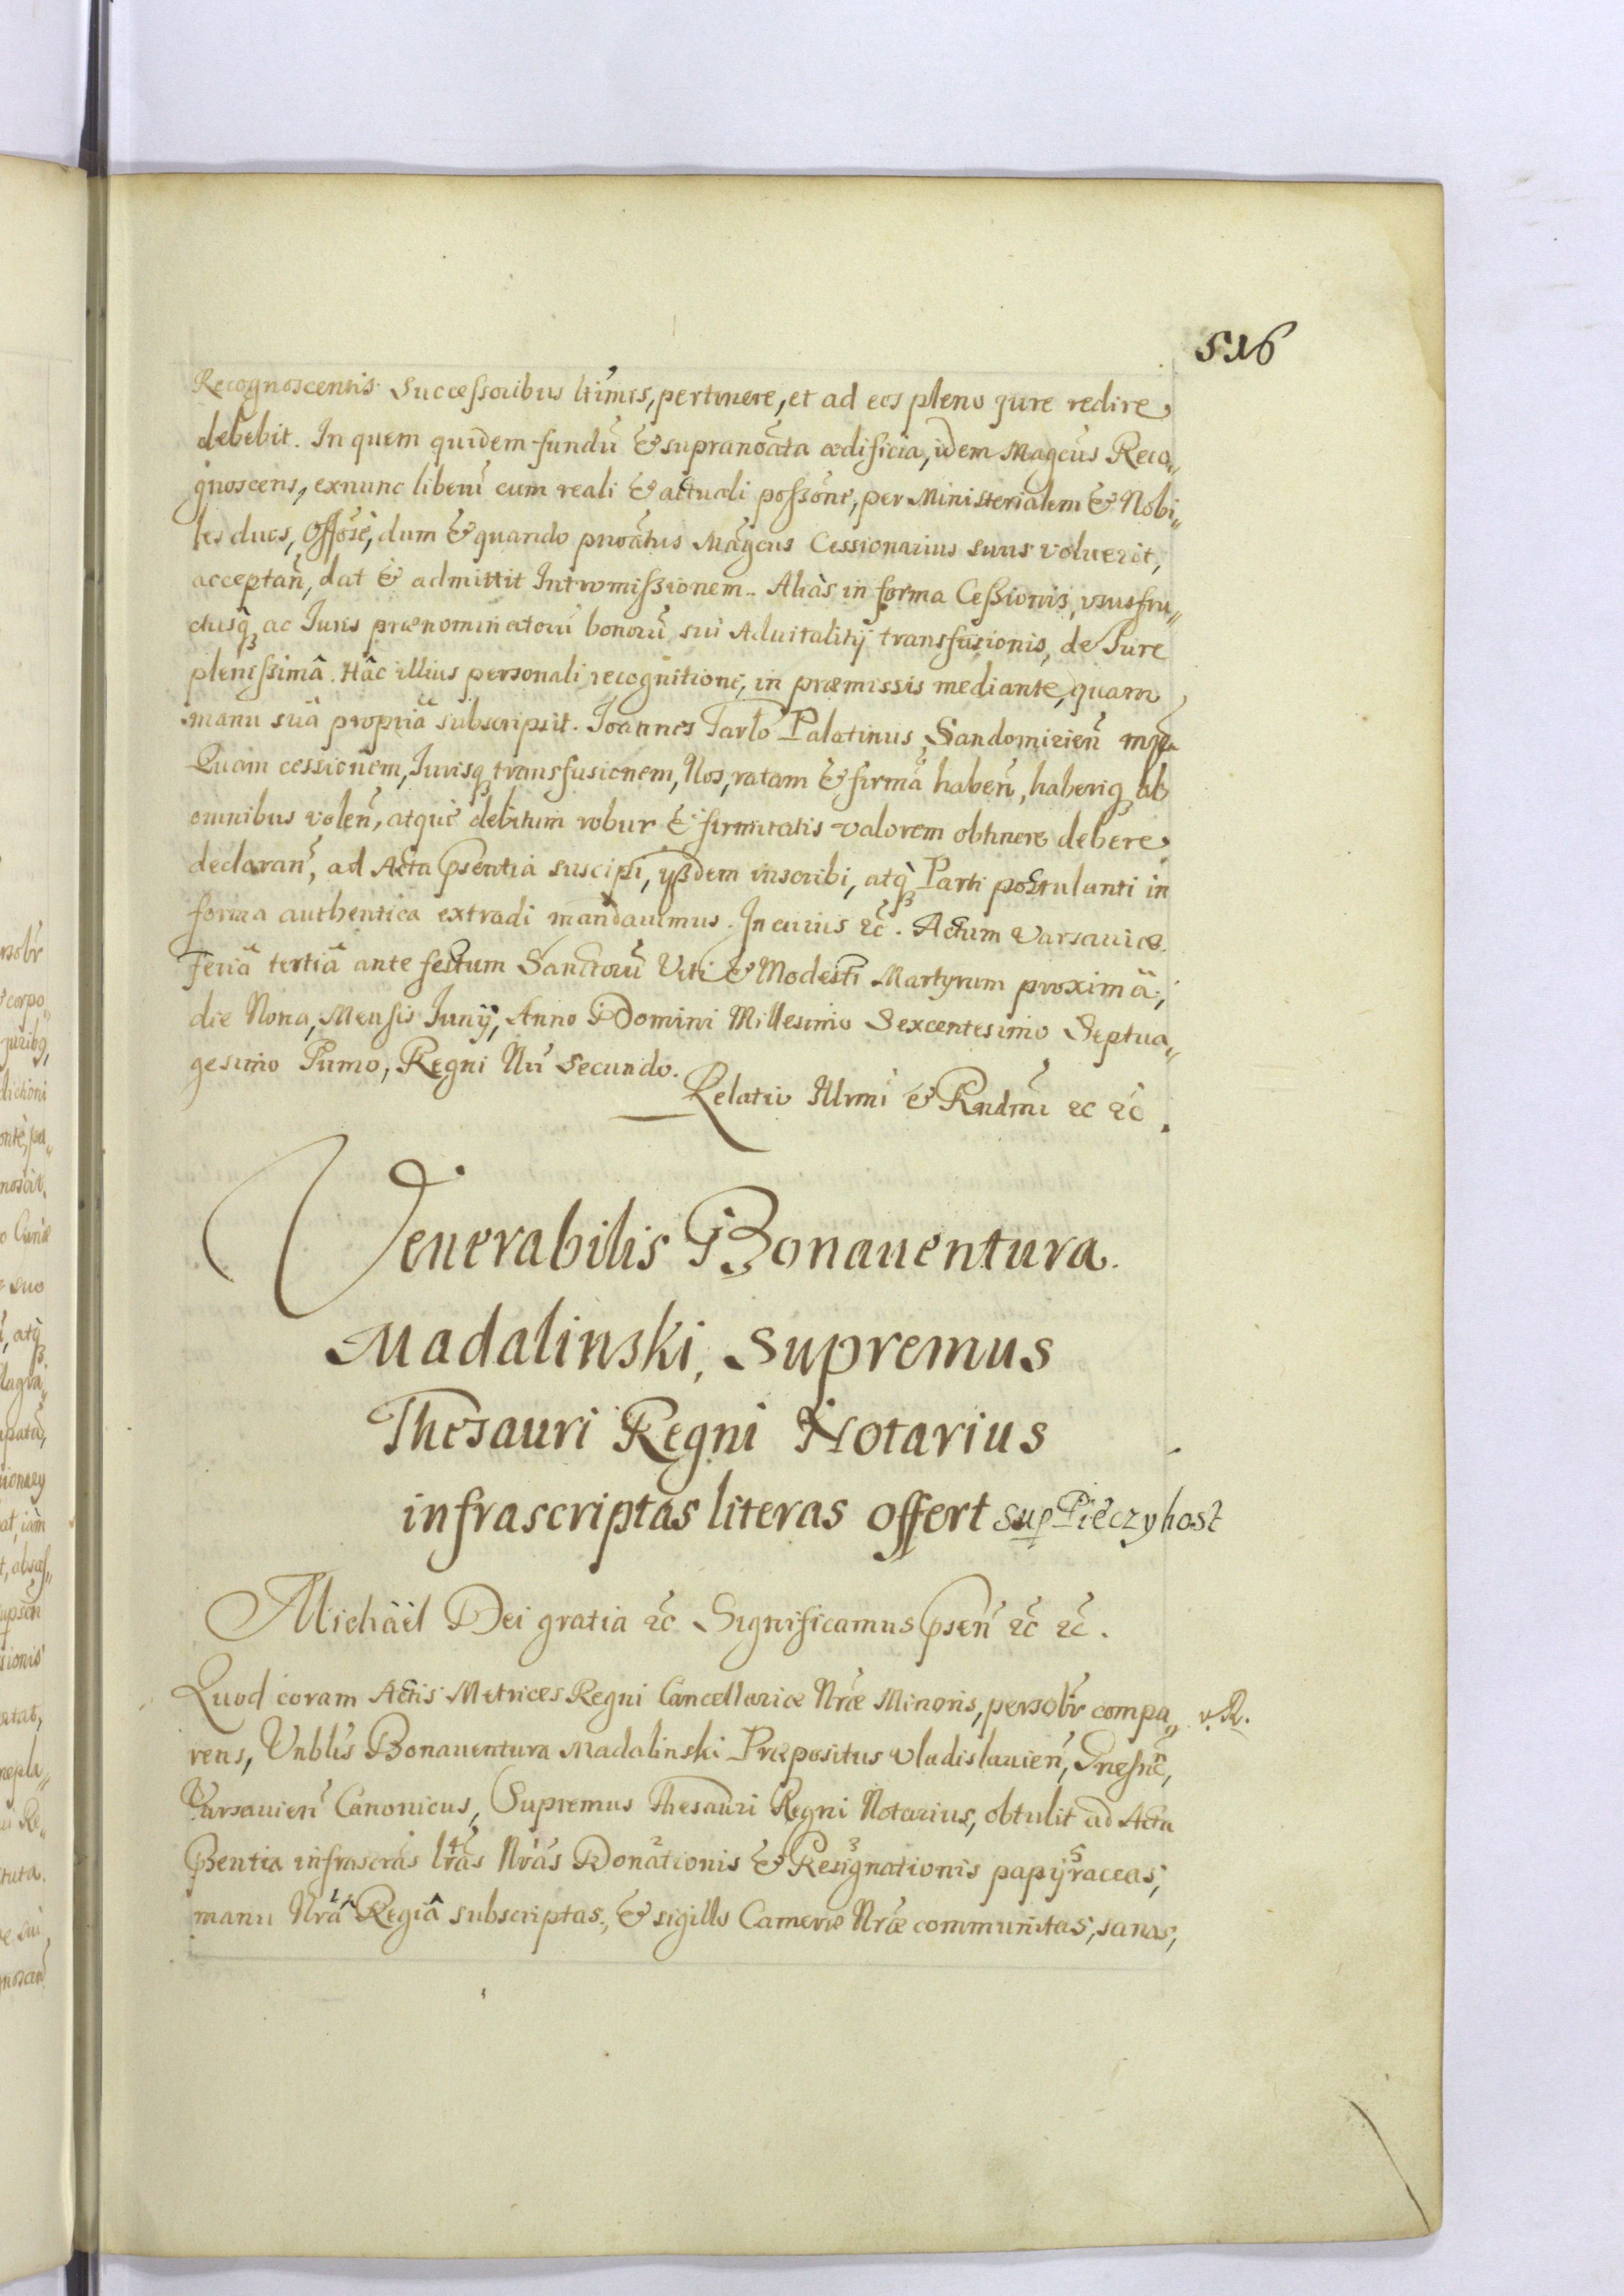 516
Recognoscentis Successoribus ltimis, pertinere, et ad eos pleno jure redire
debebit. In quem quidem fundū & supranoāta ædificia, idem Magcūs Reco„
gnoscens, exnunc liberū cum reali & actuali possōne, per Ministerialem & Nobi„
les duos, Offōse, dum & quando pnoātus Magcus Cessionarius suus voluerit,
acceptañ, dat & admittit Intromissionem. Aliàs in forma Cessionis, ususfru„
ctusq̀ ac Juris prænominatorū bonorū, sui Aduitalitij transfusionis, de Jure
plenissimâ. Hâc illius personali recognitione, in præmissis mediante, quam
manu suâ propriâ subscripsit. Joannes Tarlo Palatinus Sandomirieñ mp
Quam cessionem, Jurisq̀ transfusionem, Nos, ratam & firmā habeñ, haberiq̀ ab
omnibus voleñ, atque debitum robur & firmitatis valorem obtinere debere
declarañ, ad Acta psentia suscipi, ijsdem inscribi, atq̀ Parti postulanti in
forma authentica extradi mandauimus. In cuius &c̄. Actum Varsauiæ
feriâ tertiâ ante festum Sanctorū Viti & Modesti Martyrum proximâ,
die Nona, Mensis Junij, Anno Domini Millesimo Sexcentesimo Septua„
gesimo Primo, Regni Nri secundo.
Relatio Illrmi & Rndmi &c &c.
Venerabilis Bonauentura
Madalinski, Supremus
Thesauri Regni Notarius
infrascriptas literas offert sup Pieczyhost
Michaël Dei gratia &c̄ Significamus pseñ &c̄ &c̄.
Quod coram Actis Metrices Regni Cancellariæ Nræ Minoris, persolr̄ compa„ v. R.
rens, Vnblis Bonauentura Madalinski Præpositus Vladislauieñ, Gnesnē,
Varsauieñ Canonicus, Supremus Thesauri Regni Notarius, obtulit ad Acta
psentia infrascrās lrās Nrās Donātionis & Resignationis papijraceas,
manu Nrâ Regiâ subscriptas, & sigillo Cameræ Nræ communitas, sanas,